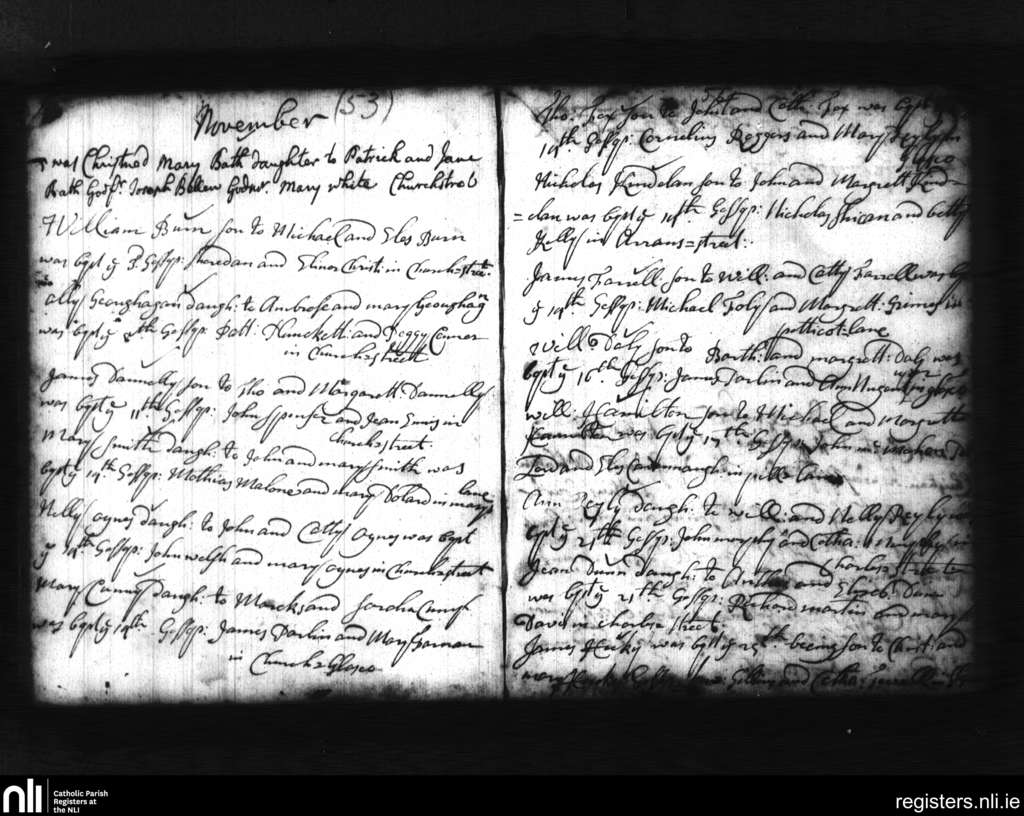 November (53)
was Christned Mary Bath daughter to Patrick and Jane
Bath Godfr. Joseph Bellew Godmr. Mary White Churchstreet
William Burn son to Michael and Eles Burn
was bapt ye Gossps: Sheredan and Elinor Christi: in Church=street
ally Geoughagan daugh: to Ambrose and mary Geoughagn
was bapt ye 8th Gossps: Patt: Plunckett and Peggy Connor
in Church=streett
James Dannelly son to Tho and Margarett Dannelly
was bapt ye 11th Gossps: John Spenser and Jean Ennis in
Church=street
Mary Smith daugh: to John and mary Smith was
bapt ye 14th Gossps: Mathias Malone and mary Toland in marys
lane
Nelly Coynes daugh: to John and Catty Coynes was bapt
ye 14th Gossps: John Welsh and mary Coynes in Church=street
Mary daugh: to Marcks and Sarah
was bapt ye 14th Gossps: James Darlin and Mary
in Church=
Tho: Fox son to John and Cath: Fox was bapt
14th Gossps: Cornelius Roggers and Mary
Nicholas Kindelan son to John and Margrett Kind=
=elan was bapt ye 14th Gossps: Nicholas and betty
Kelly in Arrans=street.
James Farrell son to Will: and Catty Farrell was
ye 14th Gossps: Michael Foly and Margrett: Grimes in
petticot=lane
Will Daly son to Barth: and margrett: Daly was
bapt ye 16th Gossps: James Darlin and
Will: Hamilton son to Michael and Margrett
Hamilton was bapt ye 17th Gossps: John
and Elis Cavennaugh: in pill=lane
Ann Reyly Daugh: to Will: and Nelly Reyly
bapt ye 21th Gossps: John murphy and Catha: Murphy in
Charles=street
Jean Dunn daugh: to Arthur and Elizeb: Dunn
was bapt ye 21th Gossps: Richard martin and mary
Davis in Charles street
James was bapt ye 25th being son to Christ: and
mary Gossps: and Catha: Farrell in
nli
Catholic Parish
Registers at
the NLI
registers.nli.ie